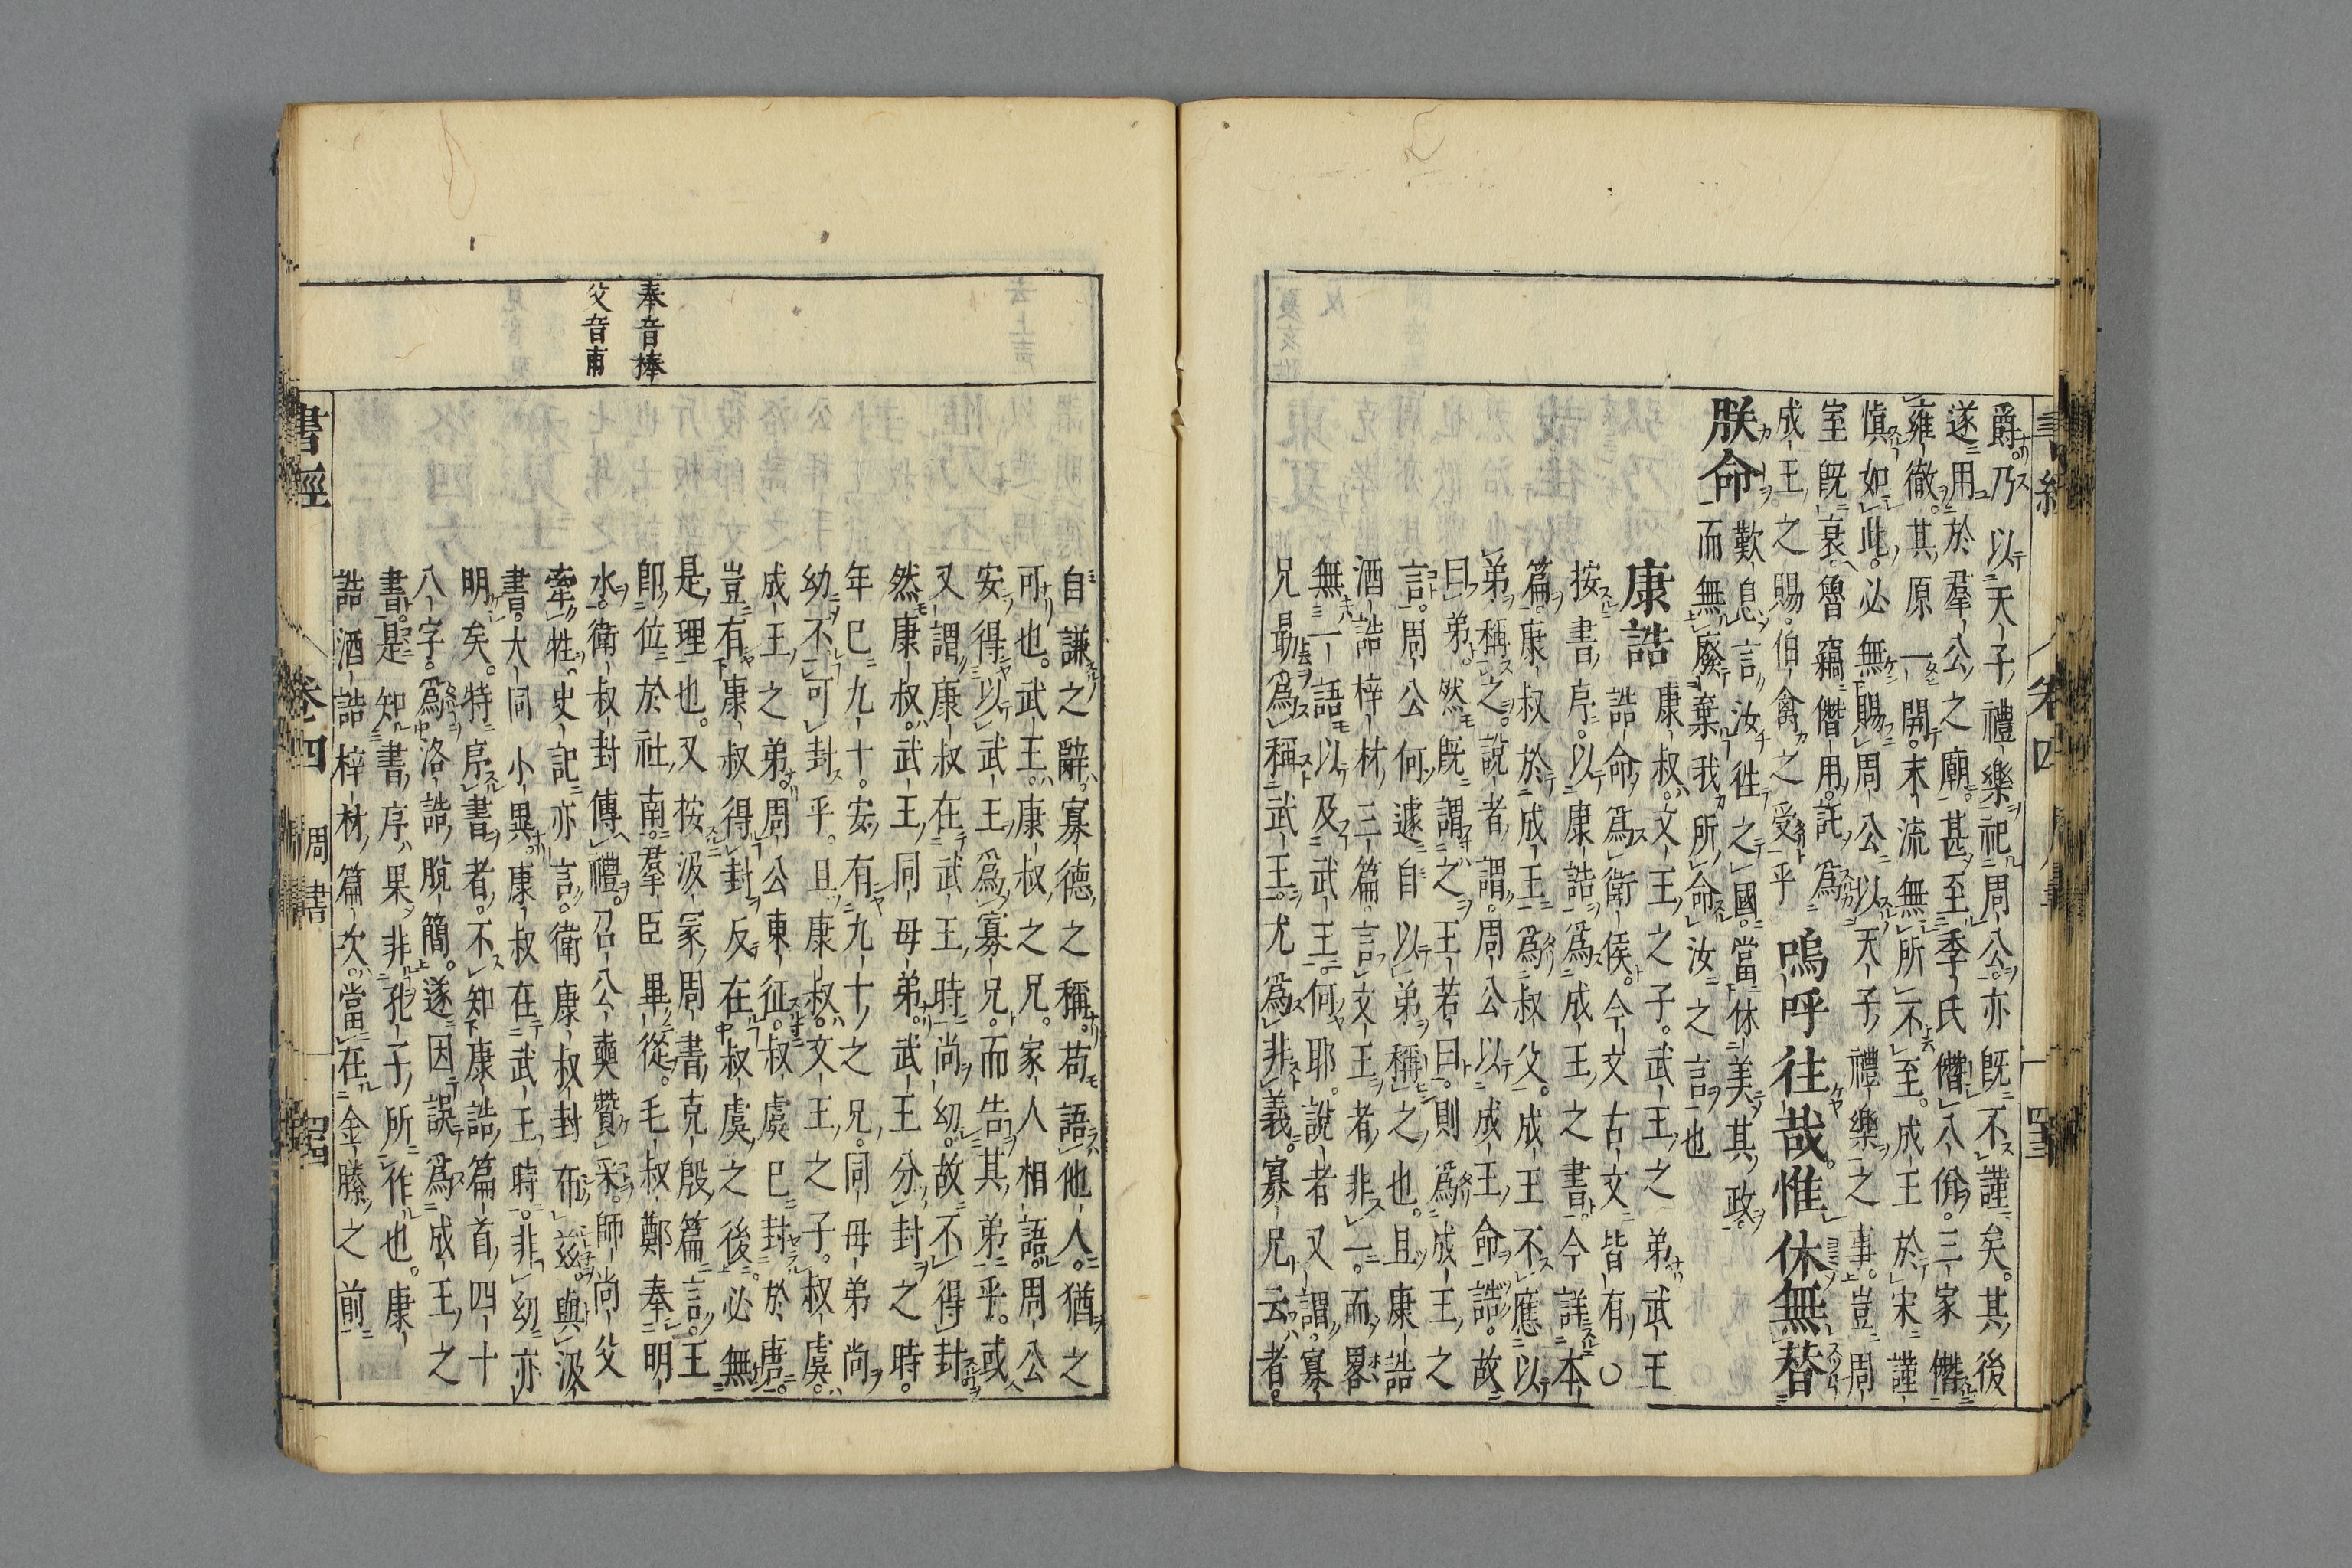 爵。乃以天子禮樂祀周公。亦既不謹矣。其後
遂用於羣公之廟。甚至季氏僭八佾。三家僭
雍徹。其原一開。末流無所不至。成王於宋謹
慎如此。必無賜周公以天子禮樂之事。豈周
室既衰。魯竊僭用。託爲
成王之賜。伯禽之受乎
嗚呼往哉。惟休無替
朕命
歎息言。汝往之國。當休美其政。
而無廢棄我所命汝之言也
康誥
康叔。文王之子。武王之弟。武王
誥命爲衛侯。今文古文皆有○
按書序。以康誥爲成王之書。今詳本
篇。康叔於成王爲叔父。成王不應以
弟稱之。說者謂。周公以成王命誥。故
曰弟。然既謂之王若曰。則爲成王之
言。周公何遽自以弟稱之也。且康誥
酒誥梓材三篇。言文王者非一。而畧
無一語以及武王。何耶。說者又謂。寡
兄勗爲稱武王。尤爲非義。寡兄云者。
自謙之辭。寡德之稱。苟語他人。猶之
可也。武王。康叔之兄。家人相語。周公
安得以武王爲寡兄。而告其弟乎。或
又謂康叔在武王時尚幼。故不得封
然康叔。武王同母弟。武王分封之時。
年已九十。安有九十之兄。同母弟尚
幼不可封乎。且康叔。文王之子。叔虞。
成王之弟。周公東征。叔虞已封於唐。
豈有康叔得封反在叔虞之後。必無
是理也。又按汲冢周書克殷篇言。王
即位於社南。羣臣畢從。毛叔鄭奉明
水。衛叔封傳禮。召公奭贊采。師尚父
牽牲。史記亦言。衛康叔封布茲。與汲
書。大同小異。康叔在武王時。非幼亦
明矣。特序書者。不知康誥篇首四十
八字。爲洛誥脫簡。遂因誤爲成王之
書。是知書序果非孔子所作也。康
誥酒誥梓材篇次。當在金縢之前
奉音捧
父音甫
書經
卷四
周書